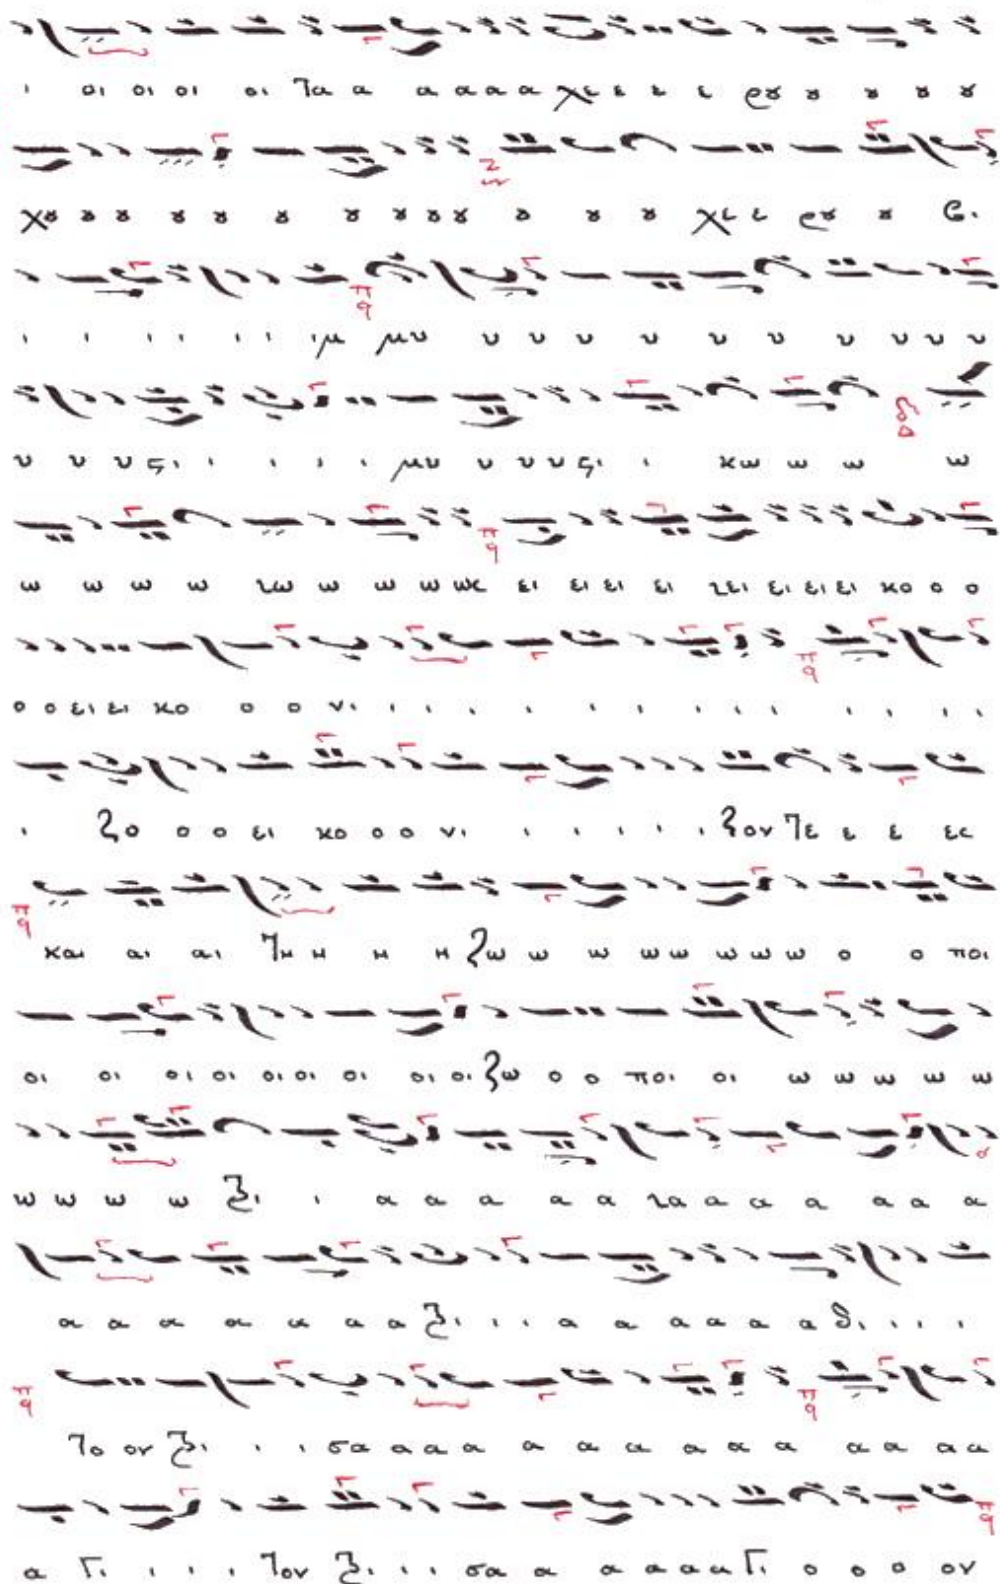 ι οι οι οι οι τα α α α α χε ε ε ε ρȣ ȣ ȣ ȣ ȣ
χȣ ȣ ȣ ȣ ȣ ȣ ȣ ȣ ȣ ȣ ȣ ȣ ȣ χε ε ρȣ ȣ βι
ι ι ι ι ι ι ιμ μυ υ υ υ υ υ υ υ υ υ υ
υ υ υ ϛι ι ι ι ι μυ υ υ υ ϛι ι κω ω ω ω
ω ω ω ω χω ω ω ω ως ει ει ει ει χει ει ει ει κο ο ο
ο ο ει ει κο ο ο νι ι ι ι ι ι ι ι ι ι ι ι ι ι
ι ζο ο ο ει κο ο ο νι ι ι ι ι ι ζον τε ε ε ες
και αι αι τη η η η ζω ω ω ω ω ω ω ω ο ο ποι
οι οι οι οι οι οι οι οι οι ζω ο ο ποι οι ω ω ω ω ω
ω ω ω ω τρι ι α α α α α χα α α α α α α
α α α α α α α τρι ι ι α α α α α α δι ι ι ι
το ον τρι ι ι ι σα α α α α α α α α α α α α
α γι ι ι ι τον τρι ι ι σα α α α α α γι ο ο ο ον